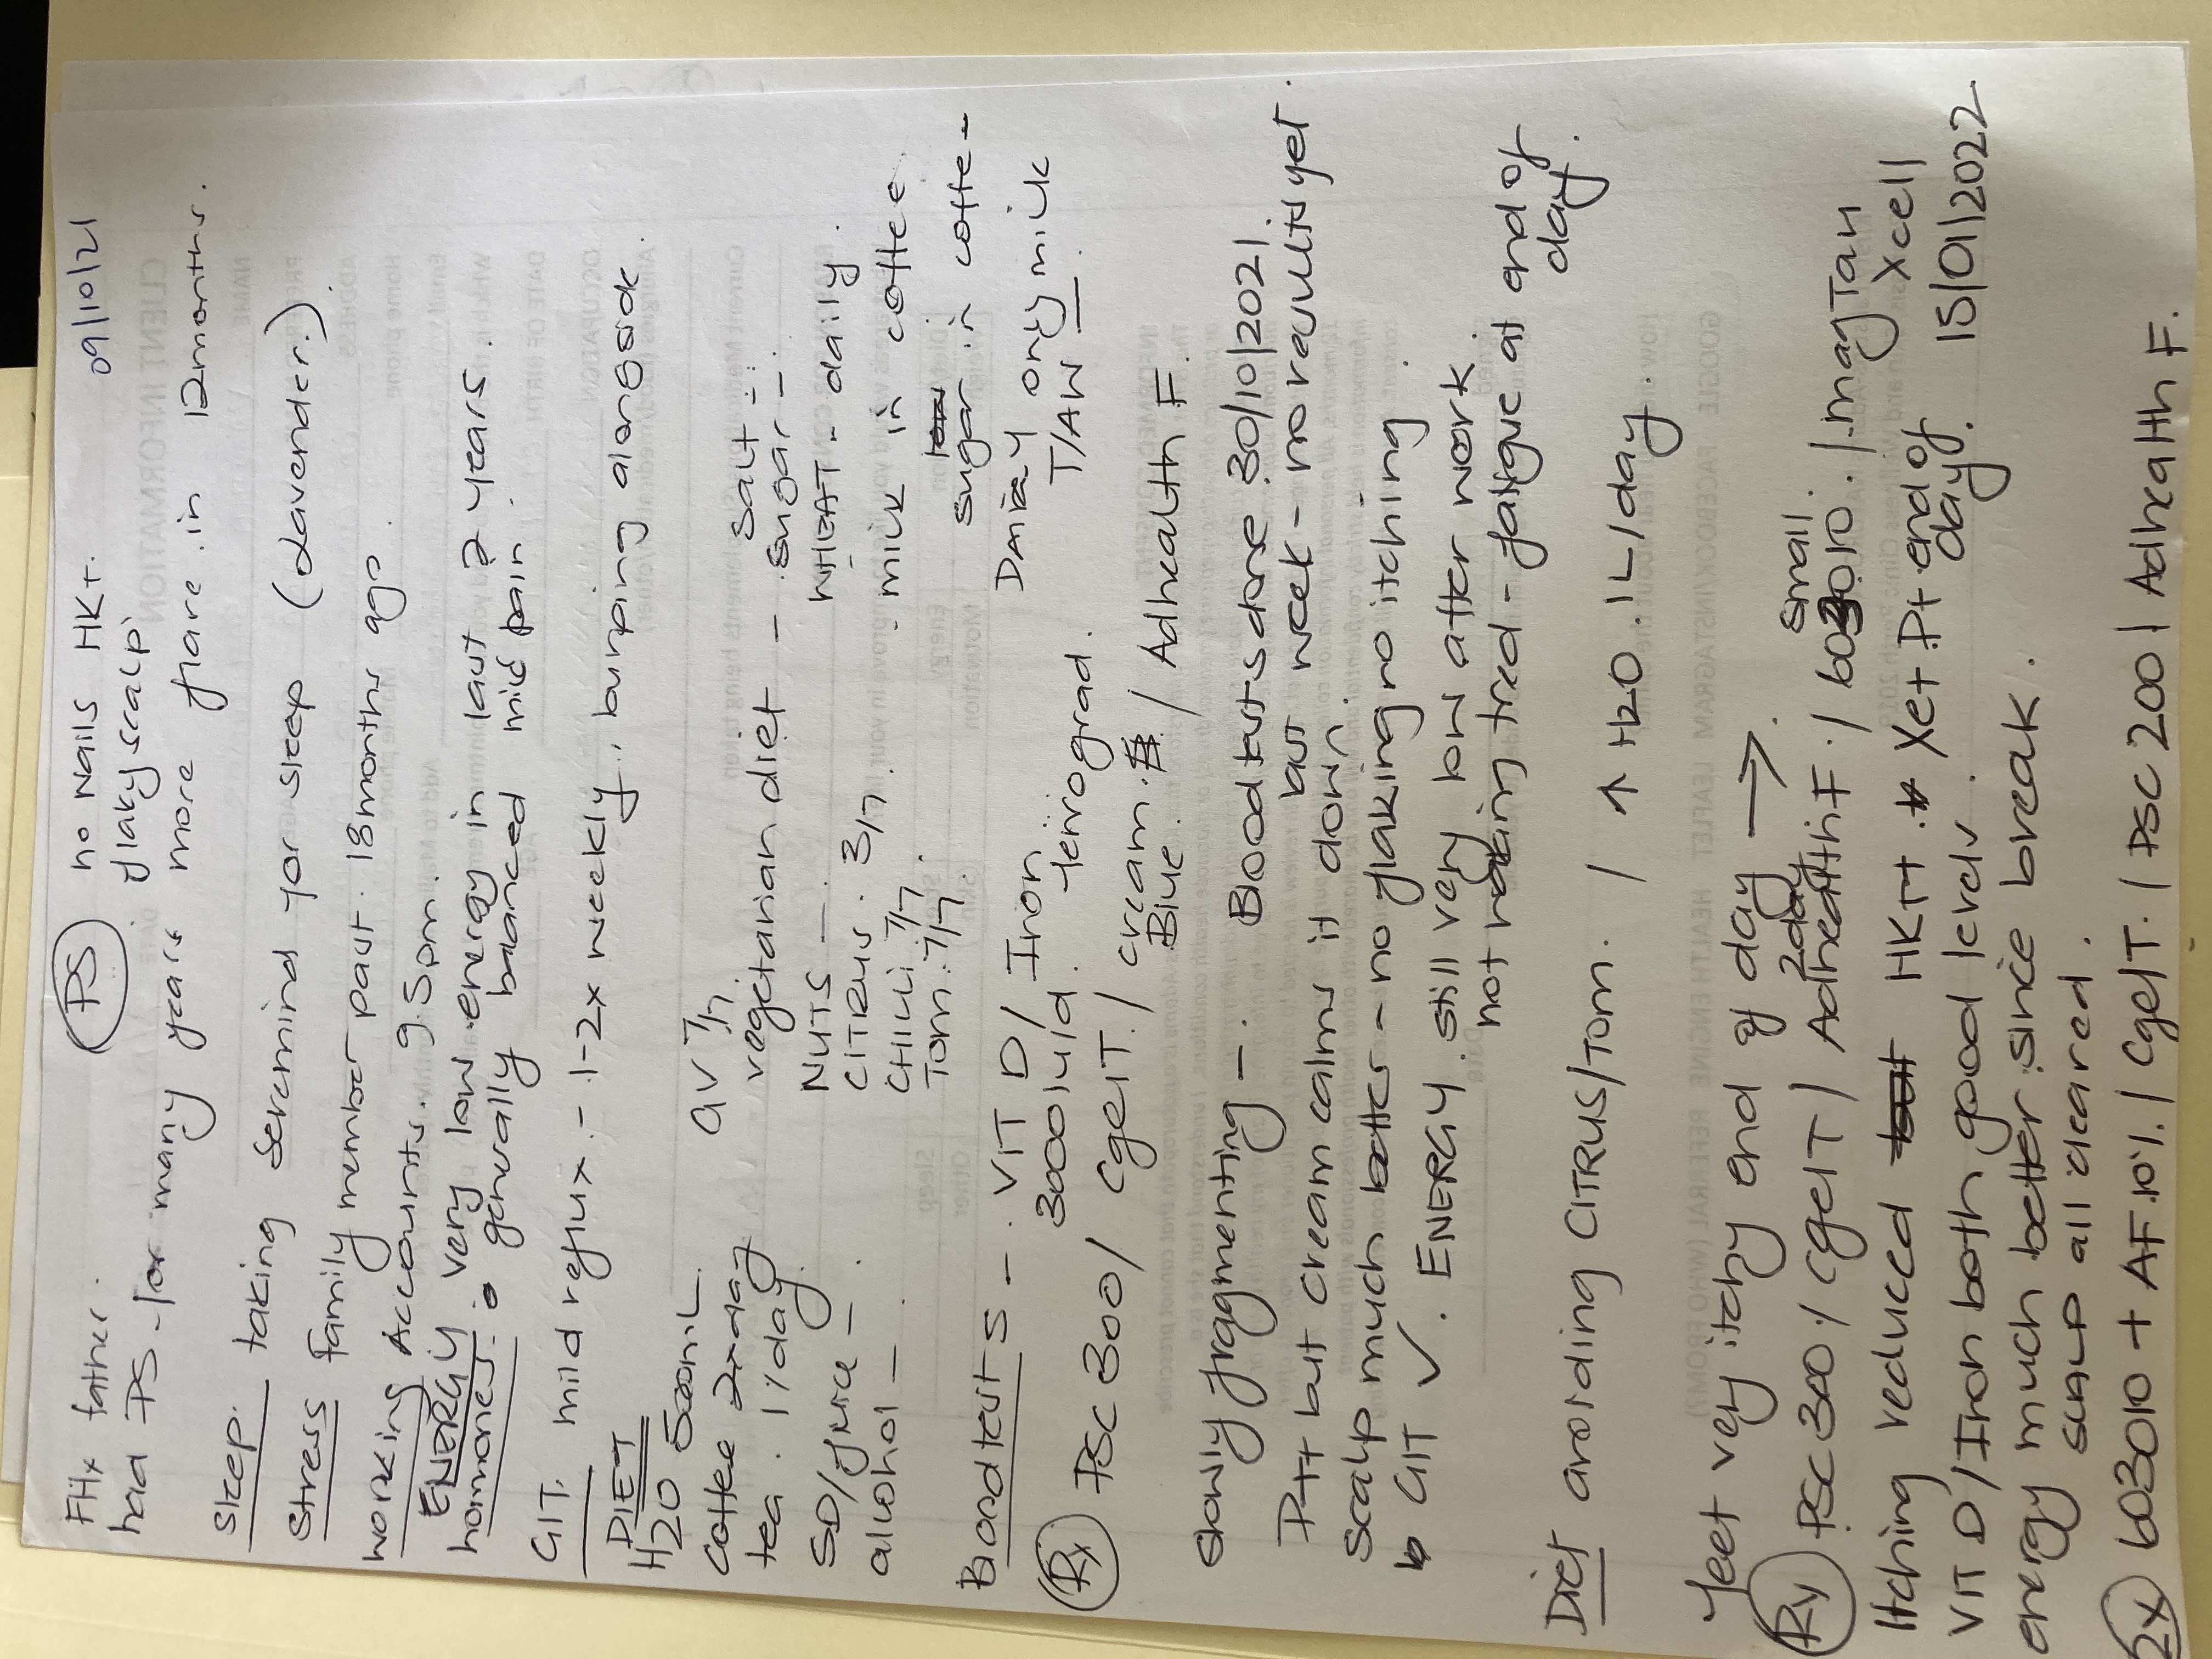 FHx father. (PS) no Nails HK+. 09/10/21
had PS - for many years flaky scalp
more flare in 12months.
Sleep. taking Seremind for sleep (Lavender.)
Stress family member past. 18months ago.
working Accounts. 9.5pm.
ENERGY very low energy in last 2 years.
hormones: generally balanced mild pain.
GIT. mild reflux. - 1-2x weekly, burping alongside.
DIET
H20 500mL GV 7/7. Salt -.
coffee 2xday vegetarian diet - sugar -.
tea. 1x/day. NUTS -. WHEAT - daily.
SD/juice -. CITRUS. 3/7. - milk in coffee.
alcohol -. CHILLI 7/7 sugar in coffee -
Tom. 7/7. DAIRY only milk
T/AW.
Bloodtests -. VIT D/ Iron
3000iuld. ferrograd.
(Rx) PSC 300/ CgelT. / cream. / Adhealth F.
Blue.
slowly fragmenting -. Bloodtests done 30/10/2021.
P++ but cream calms it down. last week - no results yet.
Scalp much better - no flaking no itching.
GIT ✓. ENERGY. still very low after work.
not tired - fatigue at end of day.
Diet avoiding CITRUS/Tom. / ↑ H20. 1L/day.
feet very itchy end of day →.
(Rx) PSC 300 / CgelT / AdhealthF. / 603010. / magTan
2day small. Xcell
Itching reduced HK++. Xet Pt end of day. 15/01/2022
VIT D/Iron both good levels.
energy much better since break.
scalp all cleared.
(Rx) 603010 + AF.10%. / CgelT. / PSC 200 / Adhealth F.